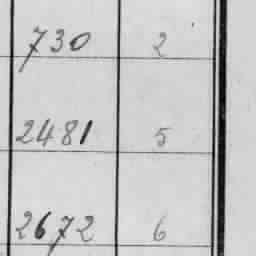 730 2
2481 5
2672 6